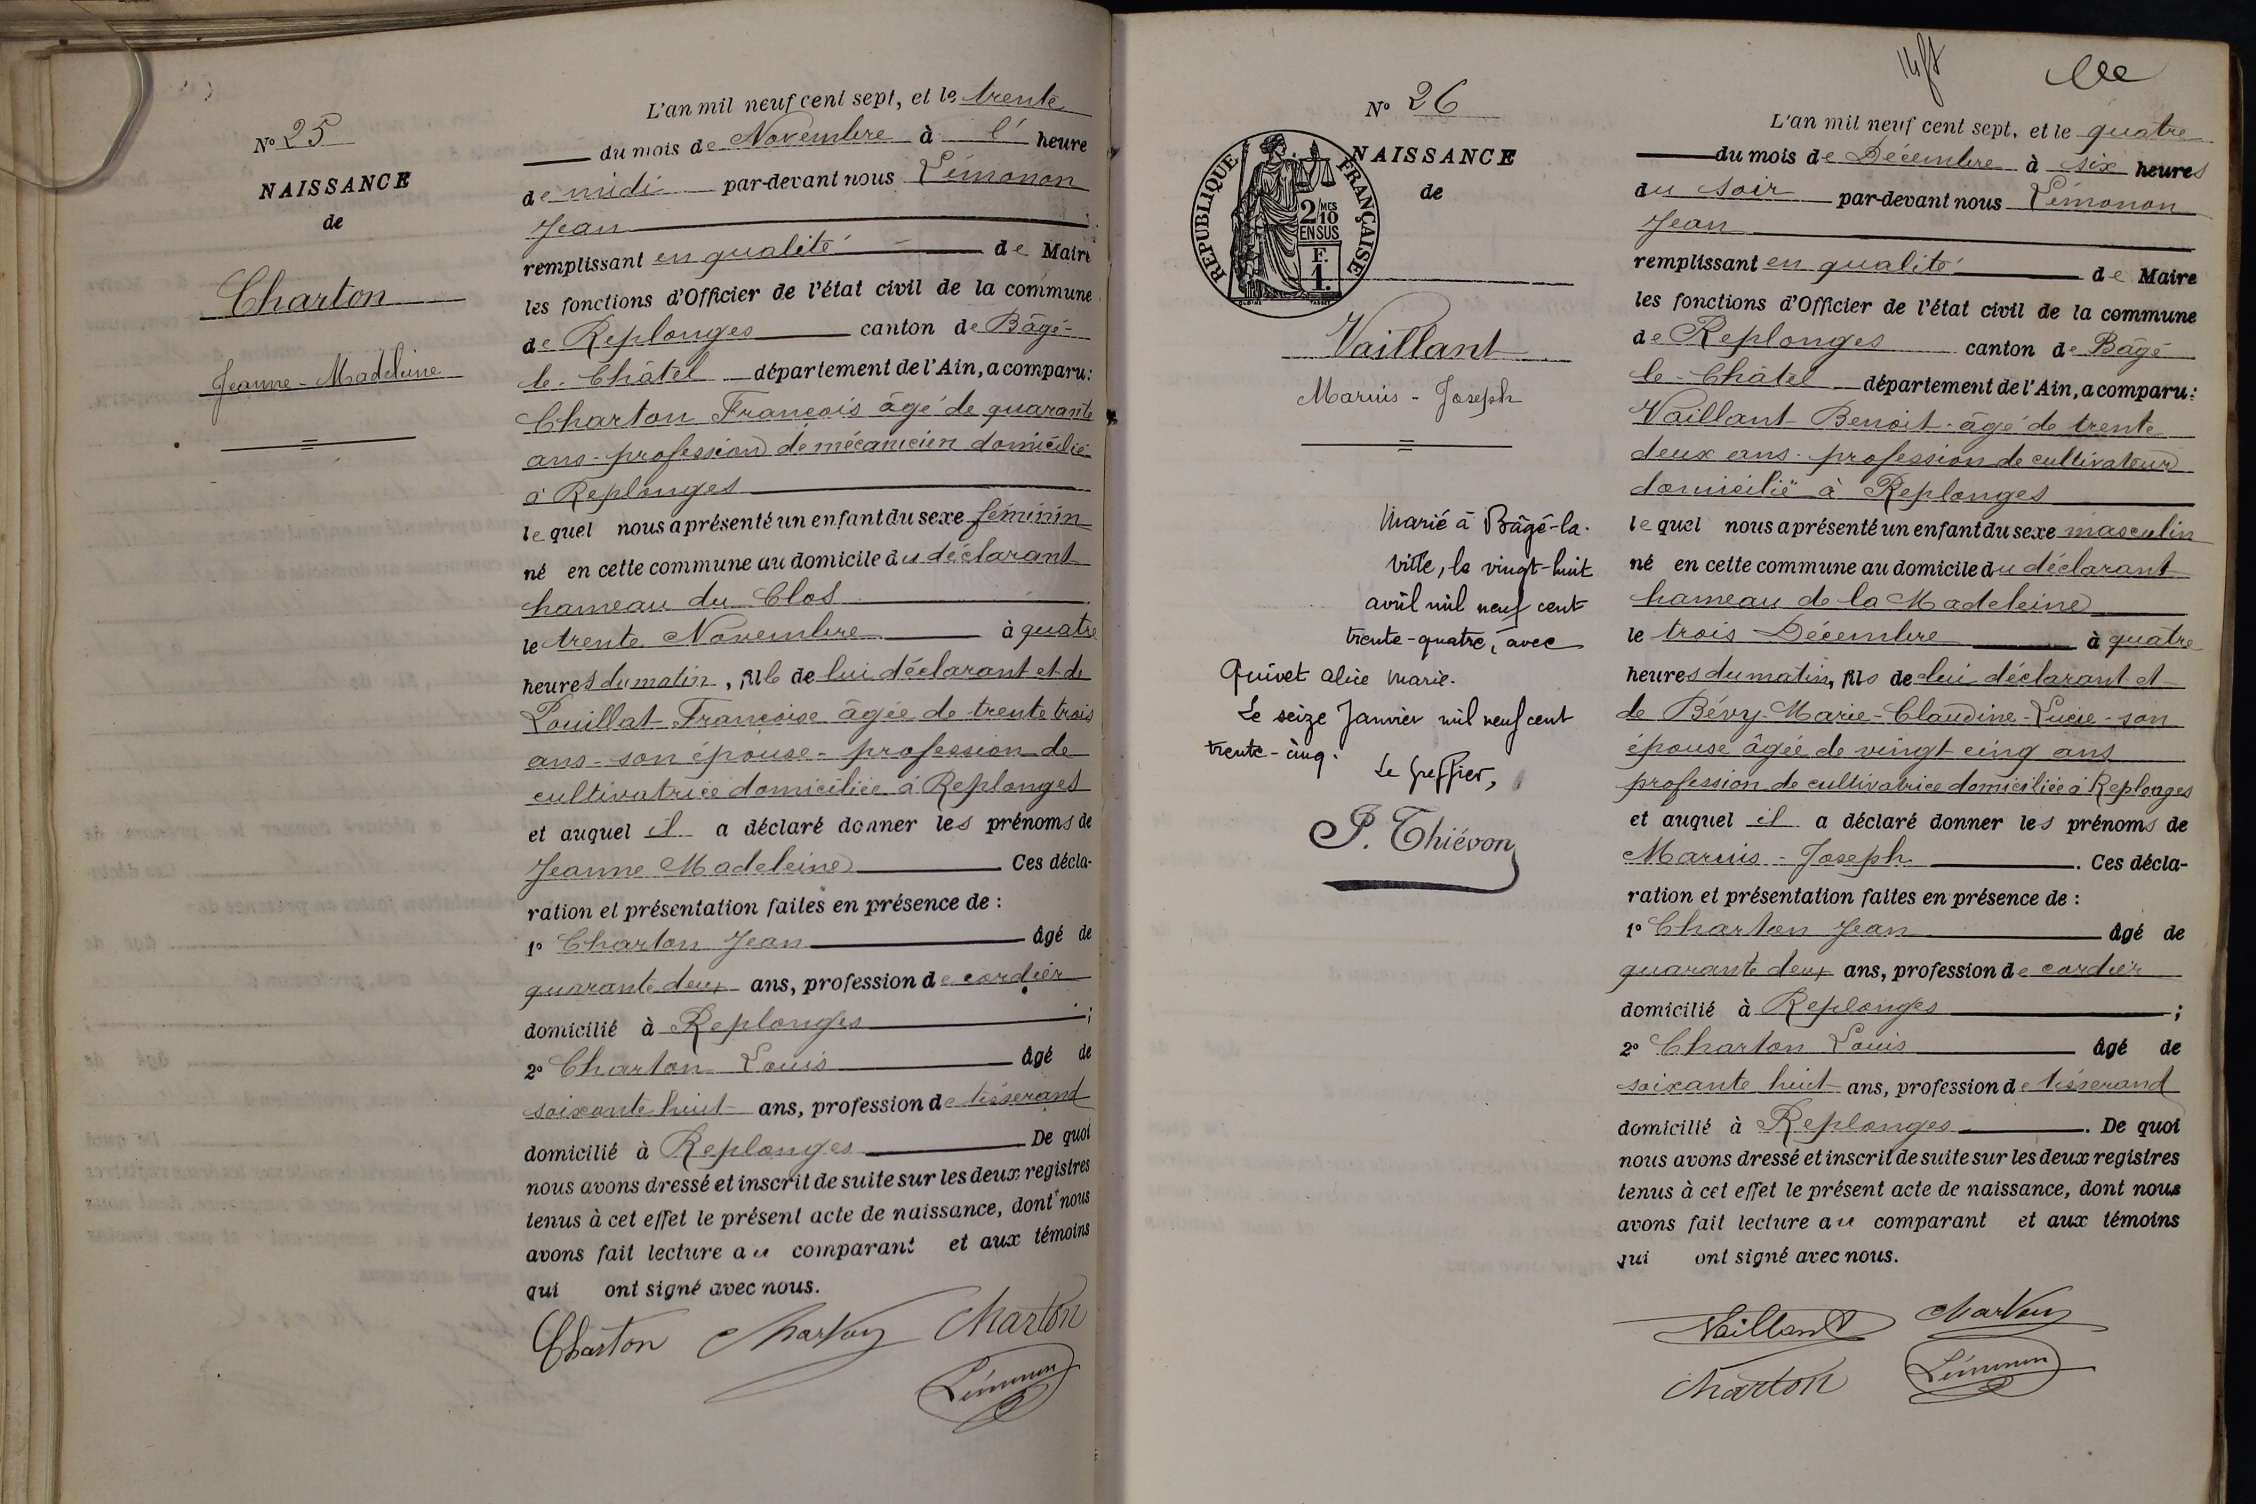 N° 25
NAISSANCE
de
Charton
Jeanne - Madeleine
L'an mil neuf cent sept, et le trente
du mois de Novembre à l' heure
de midi par-devant nous Lémonon
Jean
remplissant en qualité de Maire
les fonctions d'Officier de l'état civil de la commune
de Replonges canton de Bâgé-
le-Châtel département de l'Ain, a comparu:
Charton François âgé de quarante
ans - profession de mécanicien domicilié
à Replonges
lequel nous a présenté un enfant du sexe féminin
né en cette commune au domicile du déclarant
hameau du Clos
le trente Novembre à quatre
heures du matin, fille de lui déclarant et de
Pouillat Françoise âgée de trente trois
ans - son épouse - profession de
cultivatrice domiciliée à Replonges
et auquel il a déclaré donner les prénoms de
Jeanne Madeleine Ces décla-
ration et présentation faites en présence de :
1° Charton Jean âgé de
quarante deux ans, profession de cordier
domicilié à Replonges ;
2° Charton Louis âgé de
soixante huit ans, profession de tisserand
domicilié à Replonges De quoi
nous avons dressé et inscrit de suite sur les deux registres
tenus à cet effet le présent acte de naissance, dont nous
avons fait lecture au comparant et aux témoins
qui ont signé avec nous.
Charton Charton Charton
Lémonon
N° 26
NAISSANCE
de
REPUBLIQUE FRANÇAISE
2/10 MES
EN SUS
F.
1.
Vaillant
Marius - Joseph
Marié à Bâgé-la-
ville, le vingt-huit
avril mil neuf cent
trente-quatre, avec
Quivet Alice Marie.
Le seize Janvier mil neuf cent
trente-cinq.
Le Greffier,
P. Thiévon
L'an mil neuf cent sept, et le quatre
du mois de Décembre à six heures
du soir par-devant nous Lémonon
Jean
remplissant en qualité de Maire
les fonctions d'Officier de l'état civil de la commune
de Replonges canton de Bâgé
le-Châtel département de l'Ain, a comparu:
Vaillant Benoit - âgé de trente
deux ans - profession de cultivateur
domicilié à Replonges
lequel nous a présenté un enfant du sexe masculin
né en cette commune au domicile du déclarant
hameau de la Madeleine
le trois Décembre à quatre
heures du matin, fils de lui déclarant et
de Bévy-Marie-Claudine-Lucie - son
épouse âgée de vingt cinq ans
profession de cultivatrice domiciliée à Replonges
et auquel il a déclaré donner les prénoms de
Marius - Joseph . Ces décla-
ration et présentation faites en présence de :
1° Charton Jean âgé de
quarante deux ans, profession de cordier
domicilié à Replonges ;
2° Charton Louis âgé de
soixante huit ans, profession de tisserand
domicilié à Replonges . De quoi
nous avons dressé et inscrit de suite sur les deux registres
tenus à cet effet le présent acte de naissance, dont nous
avons fait lecture au comparant et aux témoins
qui ont signé avec nous.
Vaillant Charton
Charton Lémonon